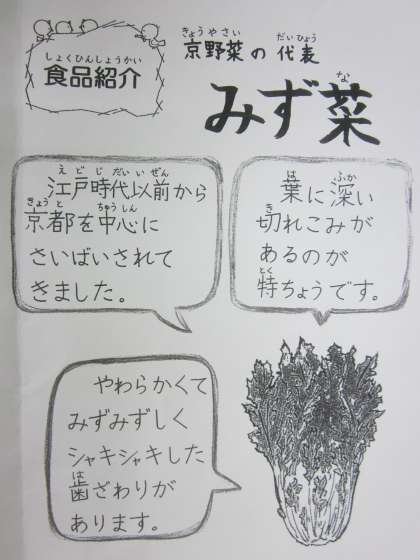 しょくひんしょうかい
食品紹介
きょうやさい だいひょう
京野菜の代表
な
みず菜
えどじだいいぜん
江戸時代以前から
きょうと ちゅうしん
京都を中心に
さいばいされて
きました。
は ふか
葉に深い
き
切れこみが
あるのが
とく
特ちょうです。
やわらかくて
みずみずしく
シャキシャキした
は
歯ざわりが
あります。